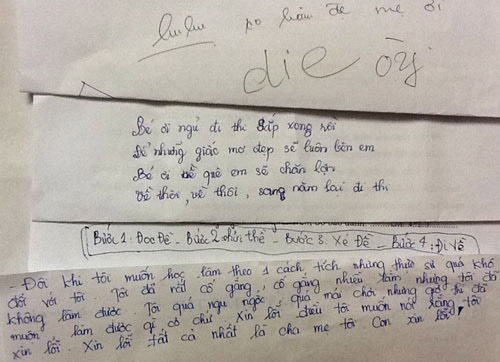 huhu ko hiểu đề mẹ ơi
die òy.
Bé ơi ngủ đi thi sắp xong rồi
Để những giấc mơ đẹp sẽ luôn bên em
Bé ơi về quê em sẽ chăn lợn
Về thôi, về thôi, sang năm lại đi thi
Bước 1: Đọc Đề - Bước 2 chửi thề - Bước 3: Xé Đề - Bước 4: Đi Về
- Đôi khi tôi muốn học, làm theo 1 cách tích những thứ quá khó
đối với tôi. Tôi đã rất cố gắng, cố gắng nhiều lắm nhưng tôi đã
không làm được. Tôi quá ngu ngốc, quá mải chơi nhưng giờ thì đã
muộn, làm được gì có chút xin lỗi, điều tôi muốn nói rằng tôi
xin lỗi. Xin lỗi tất cả nhất là cha mẹ tôi. Con xin lỗi,